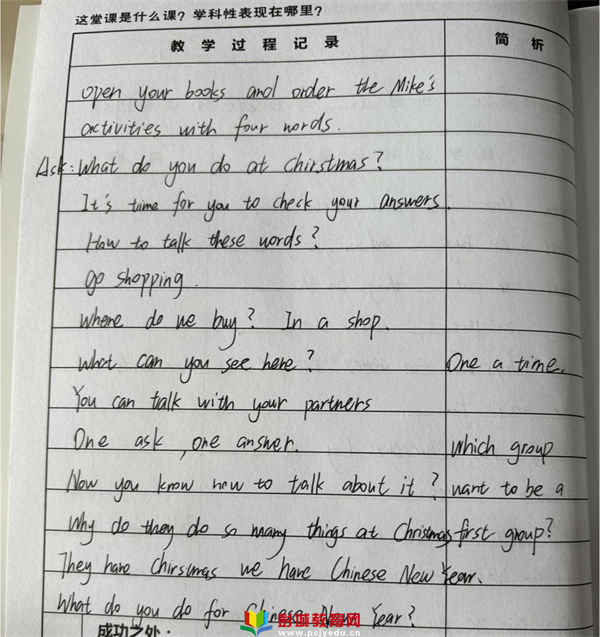 这堂课是什么课？学科性表现在哪里？
教学过程记录 简析
open your books and order the Mike's
activities with four words.
Ask: What do you do at chirstmas?
It's time for you to check your answers.
How to talk these words?
go shopping.
Where do we buy? In a shop.
What can you see here? One a time.
You can talk with your partners
One ask, one answer. which group
Now you know how to talk about it? want to be a
Why do they do so many things at Christmas first group?
They have chirstmas we have Chinese New Year.
What do you do for Chinese New Year?
成功之处：
教育网
www.pcjyedu.cn